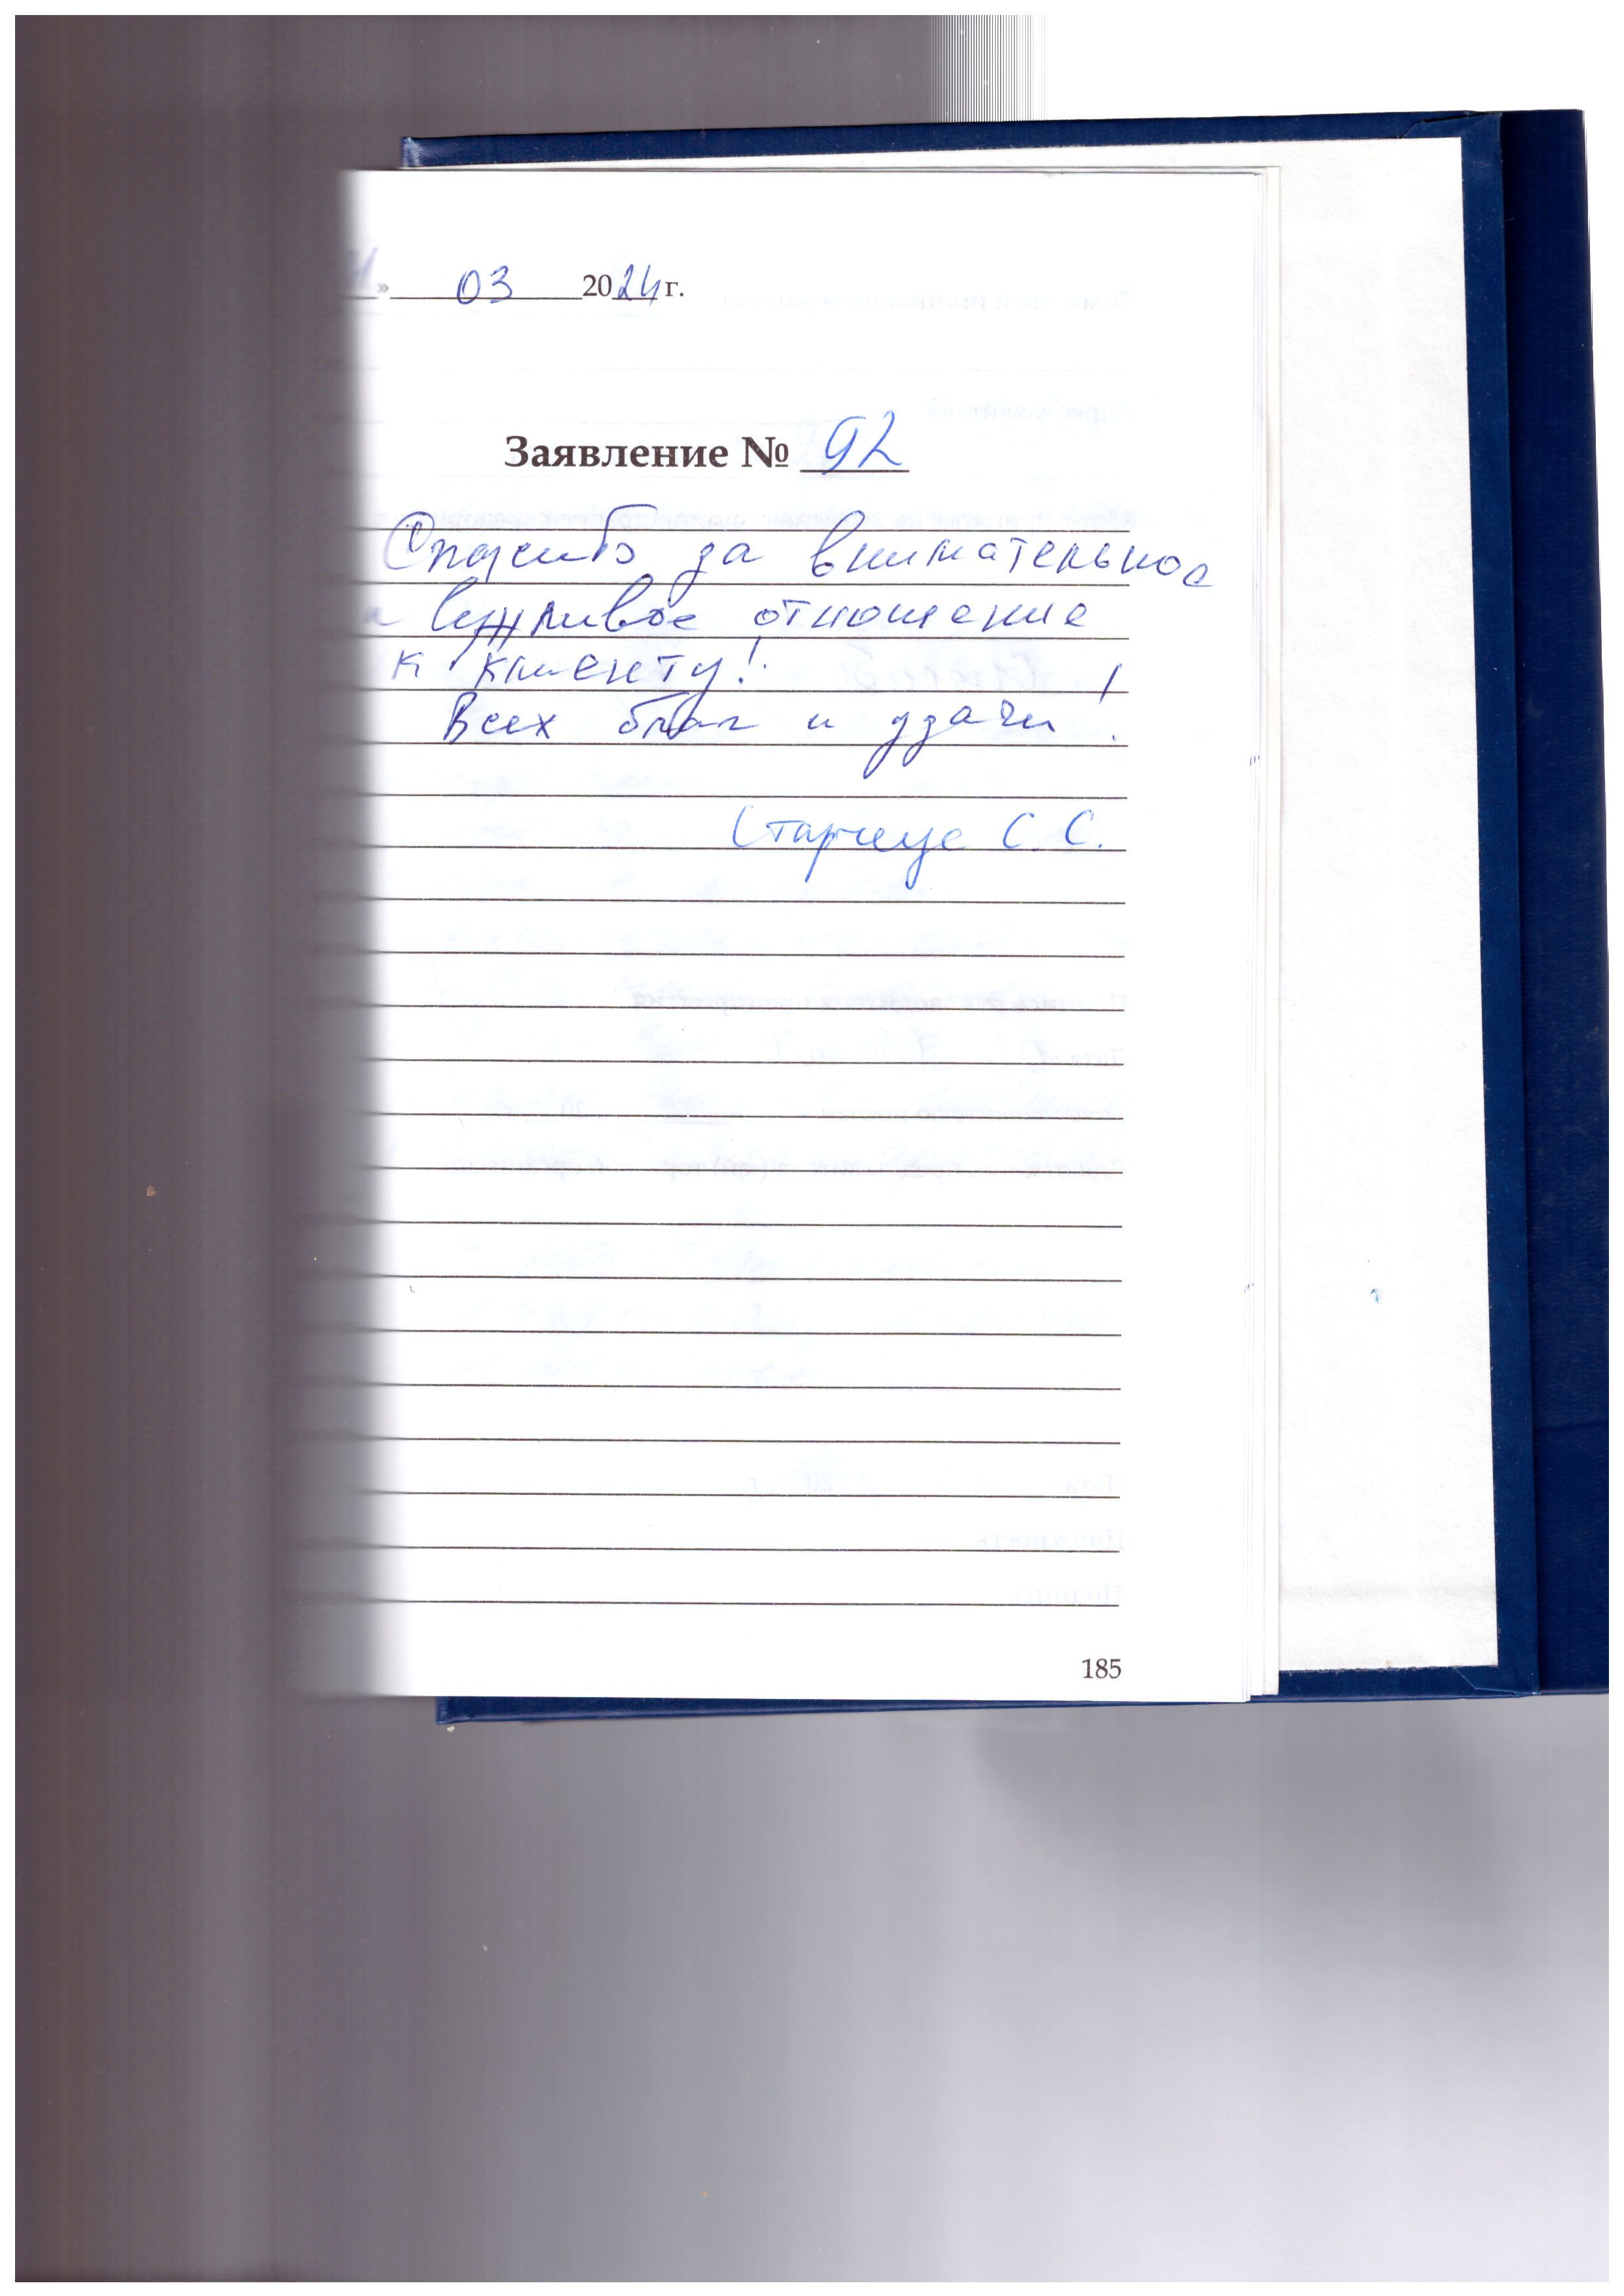 » 03 2024 г.
Заявление № 92
Спасибо за внимательное
и вежливое отношение
к клиенту!
Всех благ и удачи!
С. С.
185